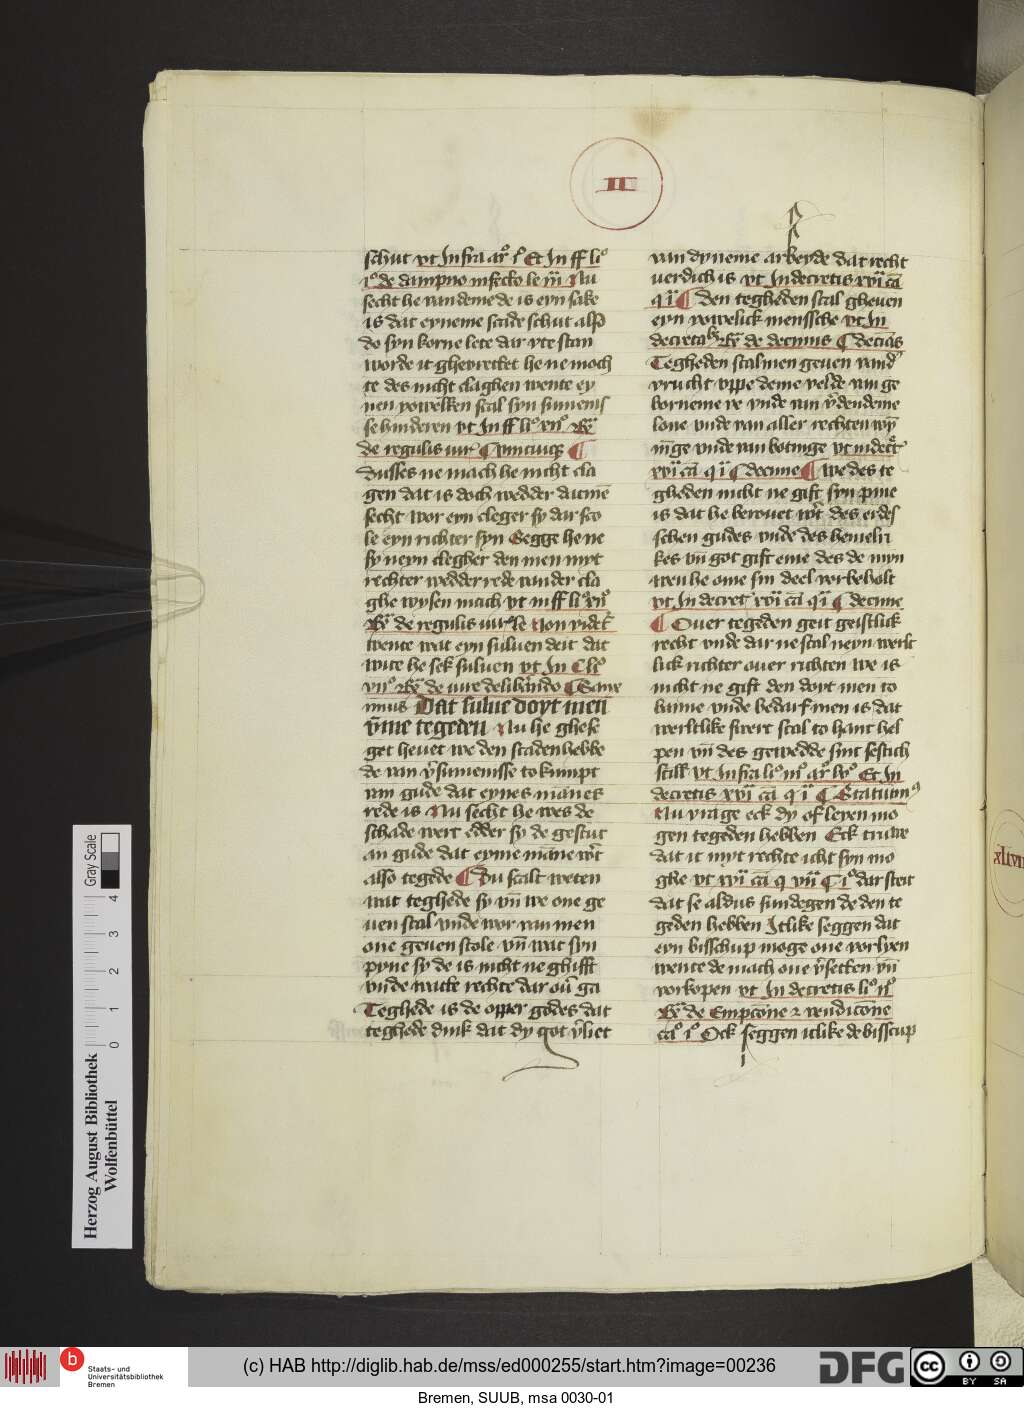 II
schut vt Infra ar͛ i͛ Et In ff li͛
i͛ de dampno infecto le iij Nu
secht he van deme de is eyn sake
is dat eyneme scade schut also
do syn korne lete dar vte stan
worde it ghevrettet he ne moch
te des nicht claghen wente ey
nen yowelken scal syn sumenis
se hinderen vt In ff li͛
de regulis iur ¶
Dusses ne mach he nicht cla
gen dat is doch wedder dat me
secht wor eyn cleger sy dar sco
le eyn richter syn Segge he ne
sy neyn clegher den men myt
rechter wedder rede van der cla
ghe wysen mach vt in ff li͛
de regulis iur le Non videt͛
wente wat eyn suluen deit dat
wite he sek suluen vt In
de iure delibando
mus Dat sulue doyt men
v̄me tegeden Nu he ghese
get heuet we den staden hebbe
de van v͛sumenisse to kumpt
van gude dat eynes mānes
rede is Nu secht he wes de
schade wert edd͛er sy de geschut
an gude dat eyme māne w͛t
also tegede ¶ Du scalt weten
wat teghede sy vn̄ we one ge
uen scal vnde wor van men
one geuen scole vn̄ wat syn
pyne sy de is nicht ne ghifft
vnde watte rechte dar ou͛ ga
Teghede is de opper godes dat
teghede dink dat dy got v͛liet
van dyneme arbeyde dat recht
uerdich is vt In decretis xvi cā
q i ¶ den tegheden scal gheuen
eyn yowelick menssche vt In
de decimis ¶
Tegheden scal men geuen vand͛
vrucht vppe deme velde van ge
borneme ve vnde van v͛dendeme
lone vnde van aller rechten wȳ
nīge vnde van botinge vt in decr͛
xvi cā q i ¶ decime ¶ We des te
gheden nicht ne gift syn pine
is dat he berouet w͛t des erdes
schen gudes vnde des hemeli
kes vn̄ got gift eme des de myn
wen he ome sin deel vorbeholt
vt In decret͛ xvi cā q i ¶ decime
¶ Ouer tegeden geit geistlick
recht vnde dar ne scal neyn werlt
lick richter ouer richten we is
nicht ne gift den doyt men to
banne vnde bedarf men is dat
werltlike swert scal to hant hel
pen vn̄ des gewedde sint sestich
scill vt Infra li͛ iij ar͛ Et In
decretis xvi cā q i ¶ Statuim͛
Nu vrage eck dy of leyen mo
gen tegeden hebben Eck truwe
dat it myt rechte icht syn mo
ghe vt xvi cā q vii ¶ i͛ dar steit
dat se aldus sundegen de den te
geden hebben Itlike seggen dat
eyn bisschup moge one vorlyen
wente de mach one v͛setten vn̄
vorkopen vt In decretis li͛ ii͛
de Empcōne z vendicōne
ca͛ i͛ Ock seggen itlike de bisscup
xlvii
Herzog August Bibliothek
Wolfenbüttel
Gray Scale
0 1 2 3 4
b
Staats- und
Universitätsbibliothek
Bremen
(c) HAB http://diglib.hab.de/mss/ed000255/start.htm?image=00236
DFG
cc
BY SA
Bremen, SUUB, msa 0030-01